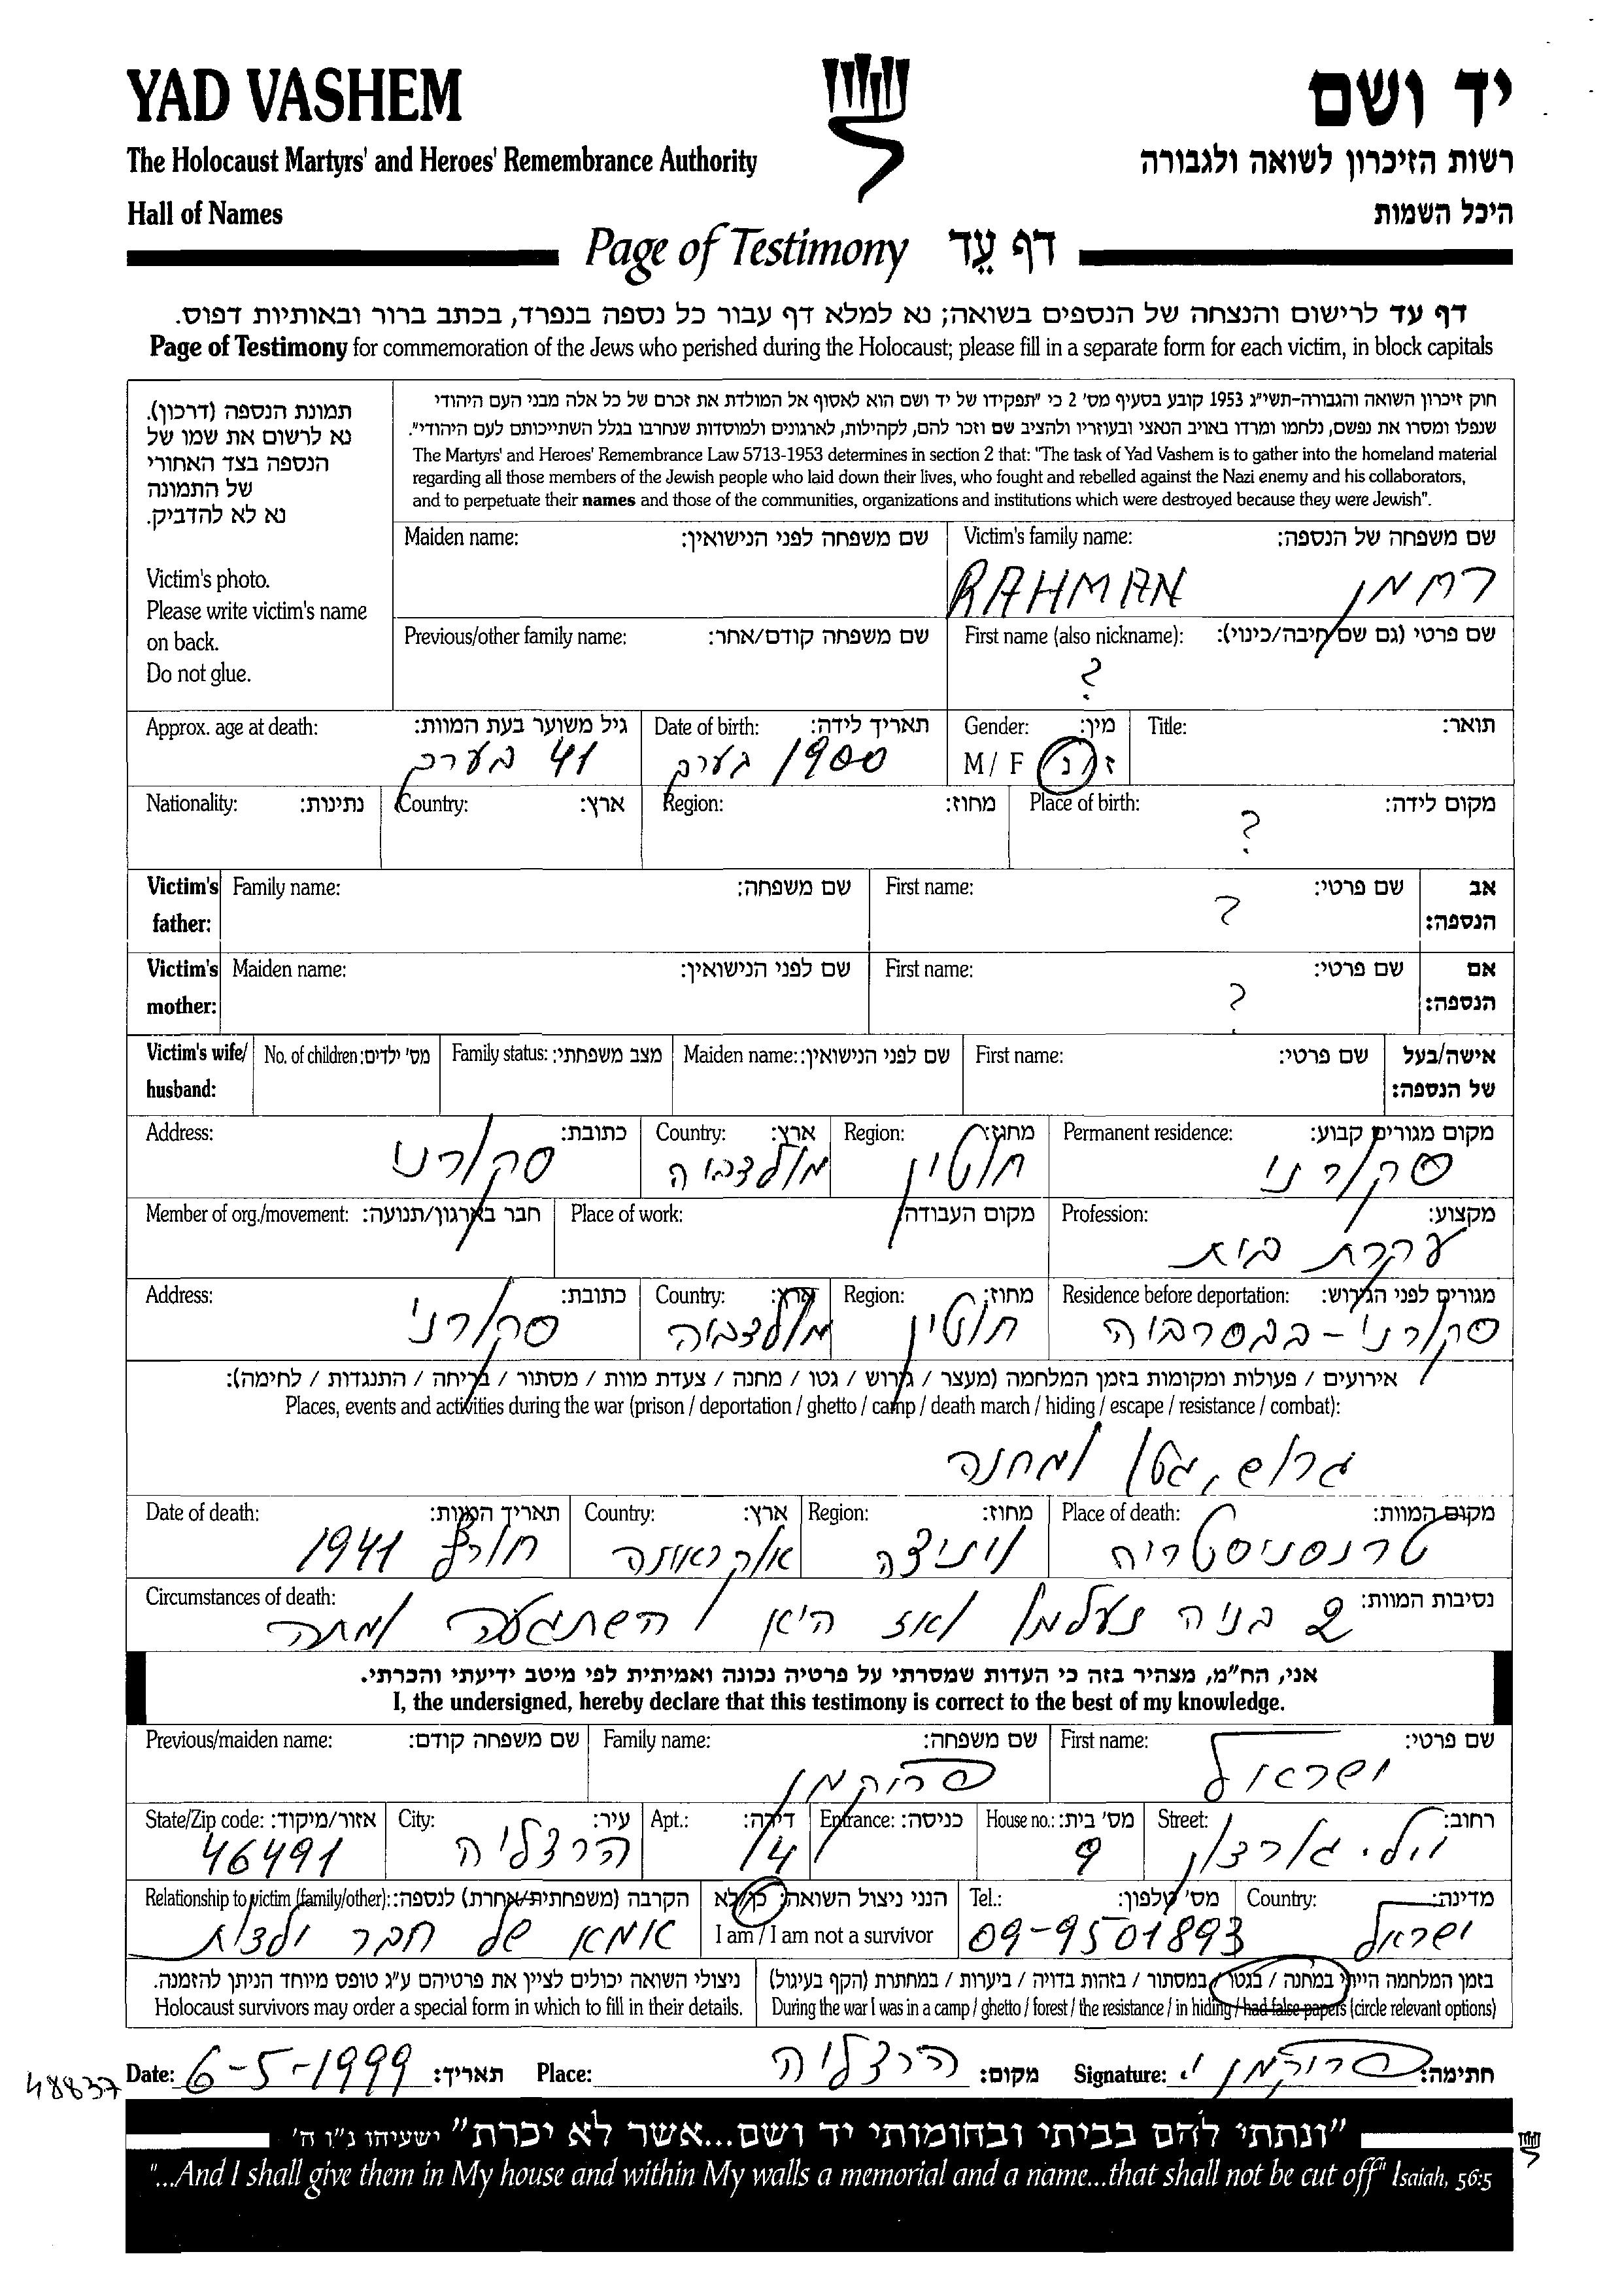 YAD VASHEM
יד ושם
The Holocaust Martyrs' and Heroes' Remembrance Authority
רשות הזיכרון לשואה ולגבורה
Hall of Names
היכל השמות
Page of Testimony דף עֵד
דף עד לרישום והנצחה של הנספים בשואה; נא למלא דף עבור כל נספה בנפרד, בכתב ברור ובאותיות דפוס.
Page of Testimony for commemoration of the Jews who perished during the Holocaust; please fill in a separate form for each victim, in block capitals
תמונת הנספה (דרכון).
נא לרשום את שמו של
הנספה בצד האחורי
של התמונה
נא לא להדביק.
Victim's photo.
Please write victim's name
on back.
Do not glue.
חוק זיכרון השואה והגבורה-תשי"ג 1953 קובע בסעיף מס' 2 כי "תפקידו של יד ושם הוא לאסוף אל המולדת את זכרם של כל אלה מבני העם היהודי
שנפלו ומסרו את נפשם, נלחמו ומרדו באויב הנאצי ובעוזריו ולהציב שם וזכר להם, לקהילות, לארגונים ולמוסדות שנחרבו בגלל השתייכותם לעם היהודי".
The Martyrs' and Heroes' Remembrance Law 5713-1953 determines in section 2 that: "The task of Yad Vashem is to gather into the homeland material
regarding all those members of the Jewish people who laid down their lives, who fought and rebelled against the Nazi enemy and his collaborators,
and to perpetuate their names and those of the communities, organizations and institutions which were destroyed because they were Jewish".
Maiden name: שם משפחה לפני הנישואין:
Victim's family name: שם משפחה של הנספה:
RAHMAN רחמן
Previous/other family name: שם משפחה קודם/אחר:
First name (also nickname): שם פרטי (גם שם חיבה/כינוי):
?
Approx. age at death: גיל משוער בעת המוות:
41 בערך
Date of birth: תאריך לידה:
1900 בערך
Gender: מין:
M / F ז / נ
Title: תואר:
Nationality: נתינות:
Country: ארץ:
Region: מחוז:
Place of birth: מקום לידה:
?
Victim's father: Family name: שם משפחה: First name: שם פרטי: אב הנספה:
?
Victim's mother: Maiden name: שם לפני הנישואין: First name: שם פרטי: אם הנספה:
?
Victim's wife/ husband: No. of children: מס' ילדים: Family status: מצב משפחתי: Maiden name: שם לפני הנישואין: First name: שם פרטי: אישה/בעל של הנספה:
Address: כתובת: Country: ארץ: Region: מחוז: Permanent residence: מקום מגורים קבוע:
סקורני מולדביה חוטין סקורני
Member of org./movement: חבר בארגון/תנועה: Place of work: מקום העבודה: Profession: מקצוע:
עקרת בית
Address: כתובת: Country: ארץ: Region: מחוז: Residence before deportation: מגורים לפני הגירוש:
סקורני מולדביה חוטין סקורני - בבסרביה
אירועים / פעולות ומקומות בזמן המלחמה (מעצר / גירוש / גטו / מחנה / צעדת מוות / מסתור / בריחה / התנגדות / לחימה):
Places, events and activities during the war (prison / deportation / ghetto / camp / death march / hiding / escape / resistance / combat):
גרוש, גטו ומחנה
Date of death: תאריך המוות: Country: ארץ: Region: מחוז: Place of death: מקום המוות:
חורף 1941 אוקראינה ויניצה טרנסניסטריה
Circumstances of death: נסיבות המוות:
2 בניה נעלמו ואז היא השתגעה ומתה
אני, הח"מ, מצהיר בזה כי העדות שמסרתי על פרטיה נכונה ואמיתית לפי מיטב ידיעתי והכרתי.
I, the undersigned, hereby declare that this testimony is correct to the best of my knowledge.
Previous/maiden name: שם משפחה קודם: Family name: שם משפחה: First name: שם פרטי:
פרוקמן ישראל
State/Zip code: אזור/מיקוד: City: עיר: Apt.: דירה: Entrance: כניסה: House no.: מס' בית: Street: רחוב:
46491 הרצליה 14 9
Relationship to victim (family/other): הקרבה (משפחתית/אחרת) לנספה: הנני ניצול השואה: כן/לא Tel.: מס' טלפון: Country: מדינה:
אמא של חבר ילדות I am / I am not a survivor 09-9501893 ישראל
ניצולי השואה יכולים לציין את פרטיהם ע"ג טופס מיוחד הניתן להזמנה.
Holocaust survivors may order a special form in which to fill in their details.
בזמן המלחמה הייתי במחנה / בגטו / במסתור / בזהות בדויה / ביערות / במחתרת (הקף בעיגול)
During the war I was in a camp / ghetto / forest / the resistance / in hiding / had false papers (circle relevant options)
48837
Date: 6-5-1999 תאריך: Place: הרצליה מקום: Signature: פרוקמן י. חתימה:
"ונתתי להם בביתי ובחומותי יד ושם...אשר לא יכרת" ישעיהו נ"ו ה'
"...And I shall give them in My house and within My walls a memorial and a name...that shall not be cut off" Isaiah, 56:5